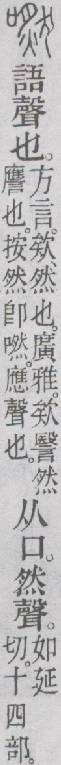 嘫 語聲也。方言。欸、然也。廣雅。欸、然、譍也。按然卽嘫。應聲也。从口。然聲。如延切。十四部。